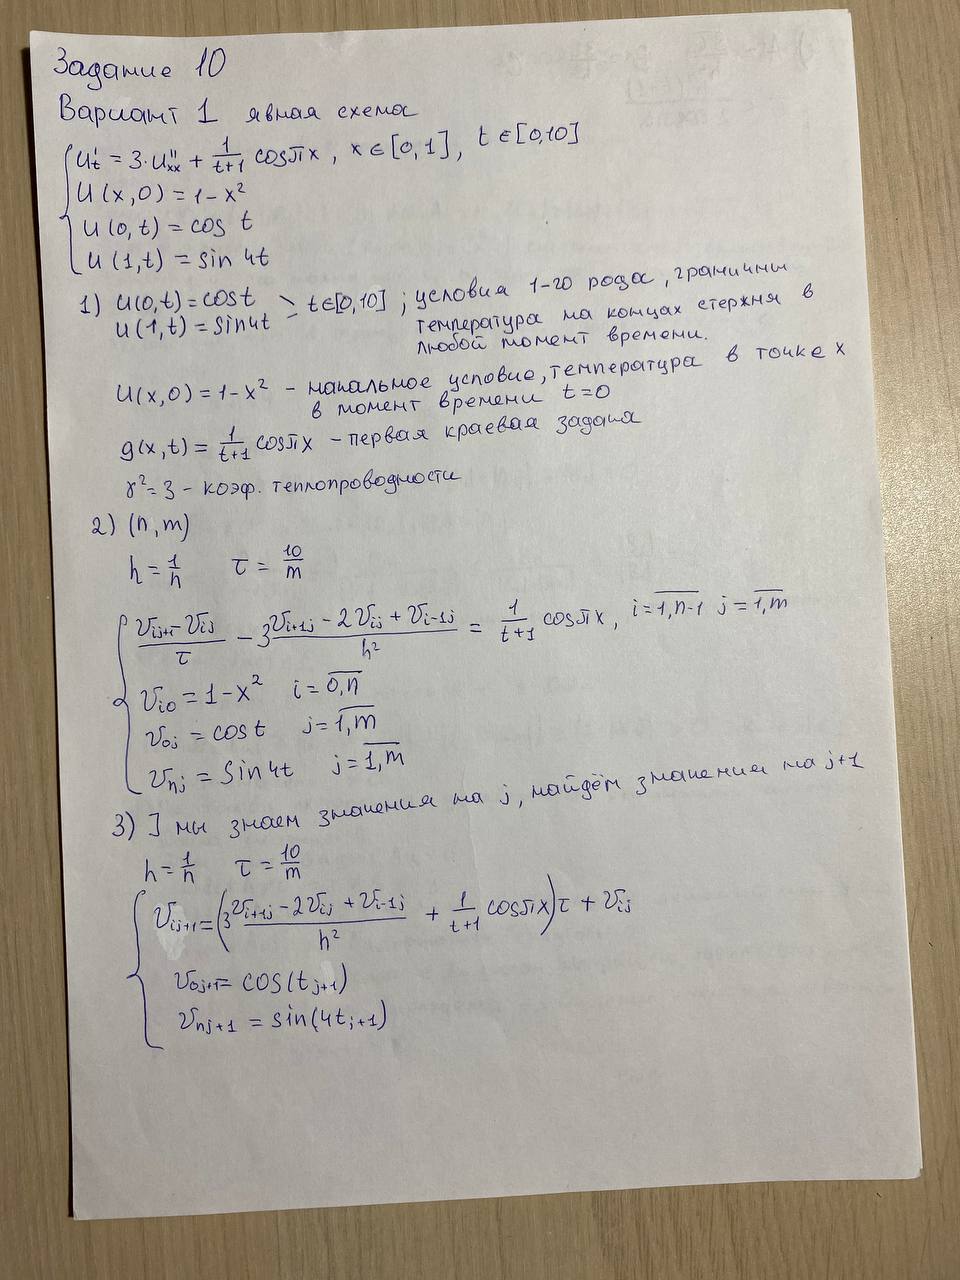 Задание 10
Вариант 1 явная схема
u't = 3·u''xx + 1/(t+1) cosπx, x∈[0,1], t∈[0,10]
u(x,0) = 1-x²
u(0,t) = cos t
u(1,t) = sin 4t
1) u(0,t) = cost > t∈[0,10]; условия 1-го рода, границы
u(1,t) = sin4t температура на концах стержня в
любой момент времени.
u(x,0) = 1-x² - начальное условие, температура в точке x
в момент времени t=0
g(x,t) = 1/(t+1) cosπx - первая краевая задача
γ²=3 - коэф. теплопроводности
2) (n,m)
h = 1/n τ = 10/m
(Vij+1 - Vij)/τ - 3 (Vi+1j - 2Vij + Vi-1j)/h² = 1/(t+1) cosπx, i=1,n-1 j=1,m
Vi0 = 1-x² i=0,n
V0j = cost j=1,m
Vnj = sin4t j=1,m
3) ] мы знаем значения на j, найдём значения на j+1
h = 1/n τ = 10/m
Vij+1 = (3 (Vi+1j - 2Vij + Vi-1j)/h² + 1/(t+1) cosπx)τ + Vij
V0j+1 = cos(tj+1)
Vnj+1 = sin(4tj+1)